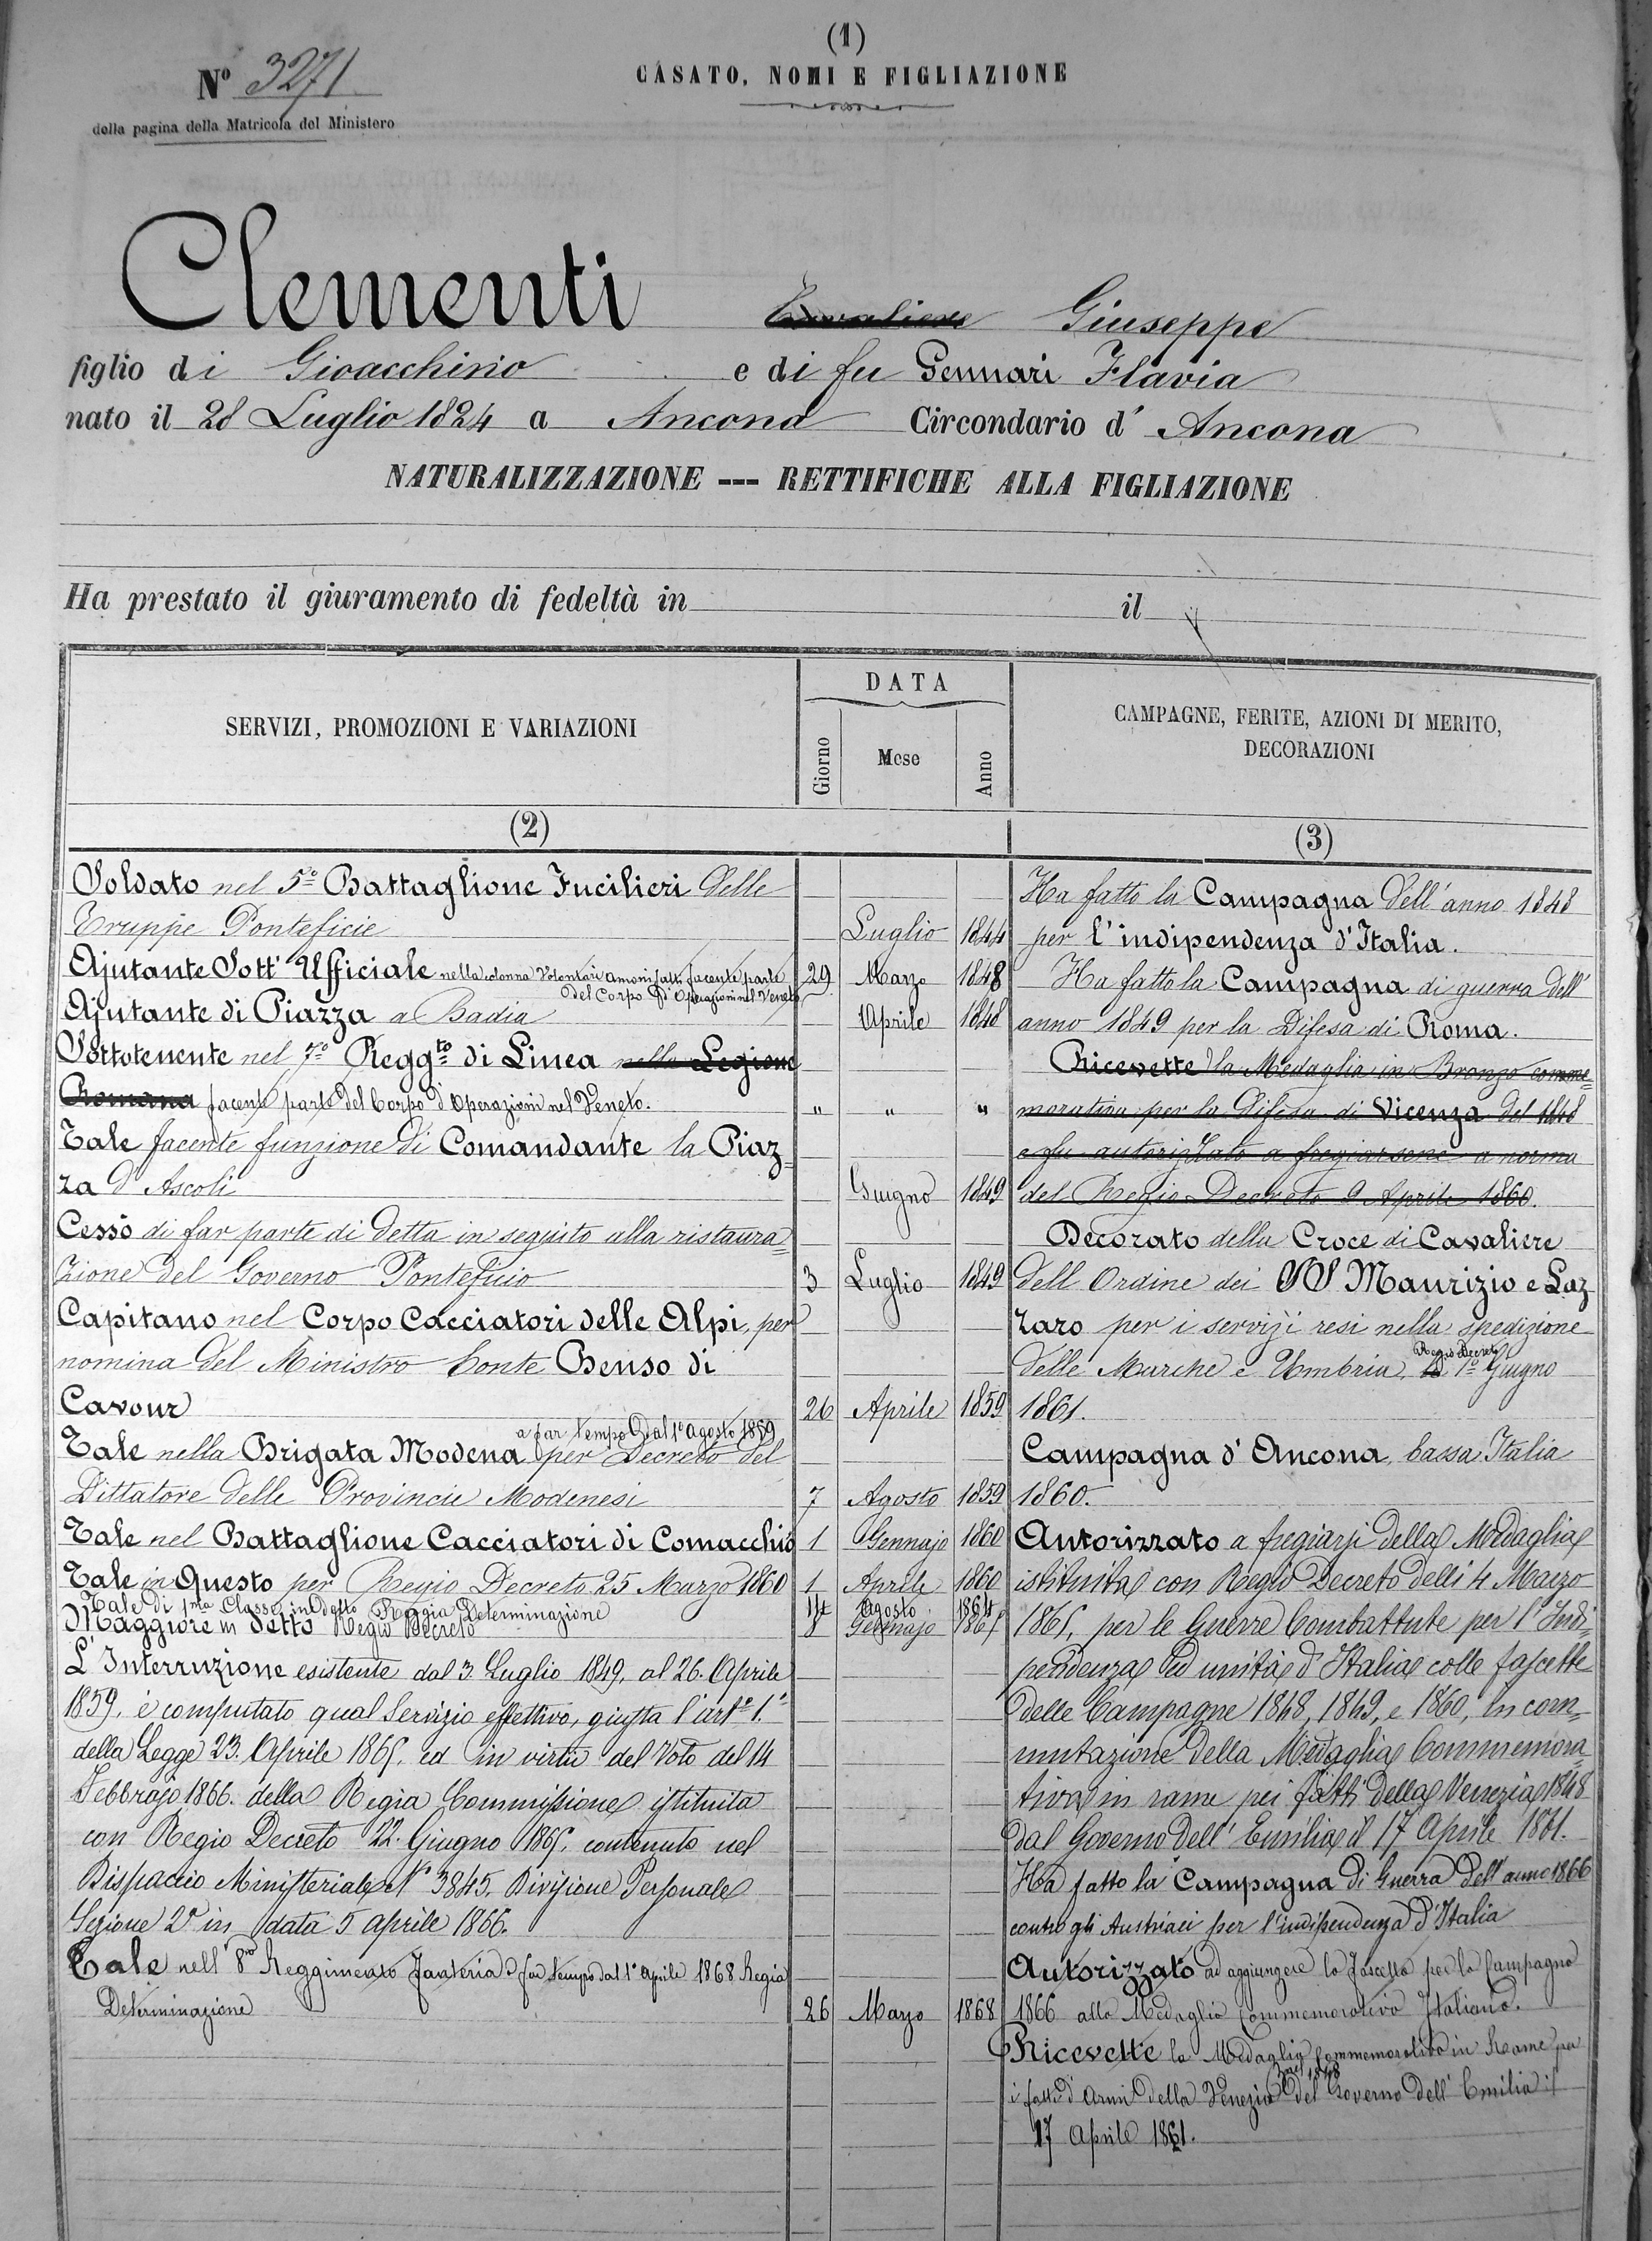 (1)
Nº 3271
CASATO, NOMI E FIGLIAZIONE
della pagina della Matricola del Ministero
Clementi Cavaliere Giuseppe
figlio di Gioacchino e di fu Gennari Flavia
nato il 28 Luglio 1824 a Ancona Circondario d' Ancona
NATURALIZZAZIONE --- RETTIFICHE ALLA FIGLIAZIONE
Ha prestato il giuramento di fedeltà in il
SERVIZI, PROMOZIONI E VARIAZIONI
DATA
Giorno Mese Anno
CAMPAGNE, FERITE, AZIONI DI MERITO,
DECORAZIONI
(2)
(3)
Soldato nel 5º Battaglione Fucilieri delle
Truppe Ponteficie Luglio 1844
Ajutante Sott' Ufficiale nella colonna Volontari facente parte 29 Marzo 1848
del Corpo d' Operazioni nel Veneto
Ajutante di Piazza a Badia Aprile 1848
Sottotenente nel 7º Reggto di Linea nella Legione
Romana facente parte del Corpo d'Operazioni nel Veneto. " " "
Tale facente funzione di Comandante la Piaz=
za d' Ascoli Giugno 1849
Cessò di far parte di detta in seguito alla ristaura=
zione del Governo Ponteficio 3 Luglio 1849
Capitano nel Corpo Cacciatori delle Alpi, per
nomina del Ministro Conte Benso di
Cavour 26 Aprile 1859
a far tempo dal 1º Agosto 1859
Tale nella Brigata Modena per Decreto del
Dittatore delle Provincie Modenesi 7 Agosto 1859
Tale nel Battaglione Cacciatori di Comacchio 1 Gennajo 1860
Tale in Questo per Regio Decreto 25 Marzo 1860 1 Aprile 1860
Tale di 1ma Classe in detto Reggia Determinazione 14 Agosto 1864
Maggiore in detto Regio Decreto 8 Gennajo 1865
L'Interruzione esistente dal 3 Luglio 1849, al 26. Aprile
1859. è computato qual Servizio effettivo, giusta l'artº 1.º
della Legge 23. Aprile 1865, ed in virtù del Voto del 14
Febbrajo 1866. della Regia Commissione istituita
con Regio Decreto 22. Giugno 1865. contenuto nel
Dispaccio Ministeriale Nº 3845. Divisione Personale
Sezione 2ª in data 5 Aprile 1866.
Tale nell' 8vo Reggimento Fanteria a far tempo dal 1º Aprile 1868 Regia
Determinazione 26 Marzo 1868
Ha fatto la Campagna dell' anno 1848
per l'indipendenza d'Italia.
Ha fatto la Campagna di guerra dell'
anno 1849 per la Difesa di Roma.
Ricevette la Medaglia in Bronzo comme=
morativa per la Difesa di Vicenza del 1848
e fu autorizzato a fregiarsene a norma
del Regio Decreto 9 Aprile 1860.
Decorato della Croce di Cavaliere
dell Ordine dei SS Maurizio e Laz
zaro per i servizii resi nella spedizione
Regio Decreto
delle Marche e Umbria 1º Giugno
1861.
Campagna d' Ancona, bassa Italia
1860.
Autorizzato a fregiarsi della Medaglia
istituita con Regio Decreto delli 4 Marzo
1865, per le Guerre Combattute per l'Indi=
pendenza ed unità d'Italia colle fascette
delle Campagne 1848, 1849, e 1860, in com=
mutazione della Medaglia Commemora=
tiva in rame pei fatti della Venezia 1848
dal Governo dell' Emilia il 17 Aprile 1861.
Ha fatto la Campagna di Guerra dell' anno 1866
contro gli Austriaci per l'indipendenza d'Italia
Autorizzato ad aggiungere la fascetta per la Campagna
1866 alla Medaglia Commemorativa Italiana.
Ricevette la Medaglia Commemorativa in Rame per
i fatti d'Armi della Venezia del Governo dell' Emilia il
17 Aprile 1861.